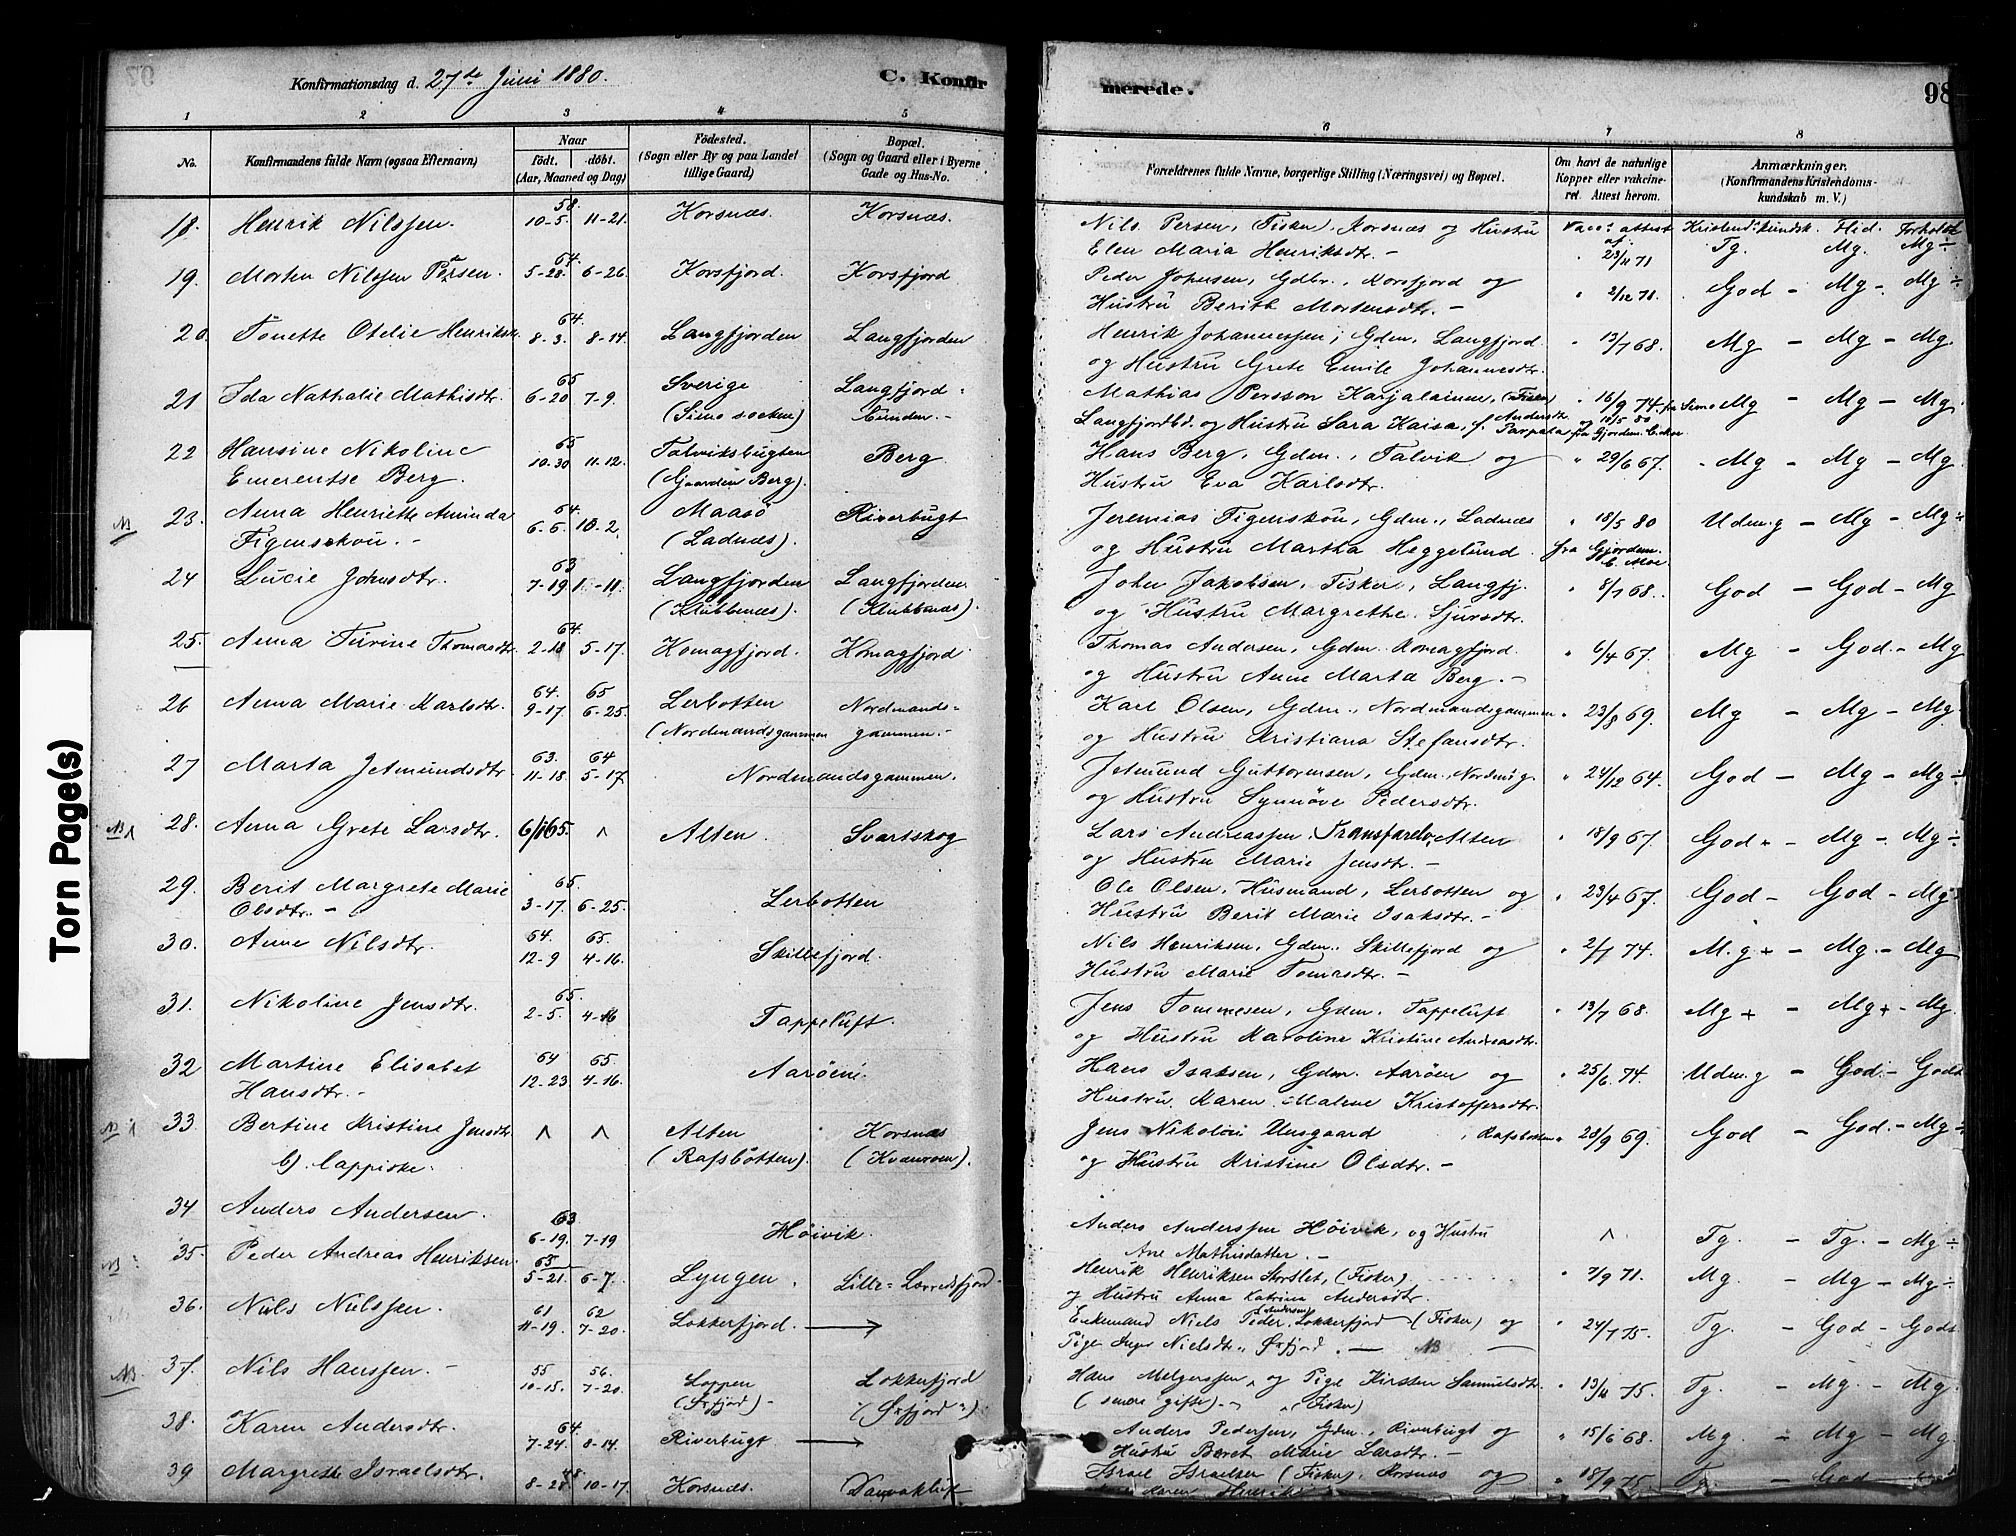 Konfirmationsdag d. 27de Juni 1880.
C. Konfir
merede.
98
1 2 3 4 5 6 7 8
No.
Konfirmandens fulde Navn (ogsaa Efternavn)
Naar
födt. döbt.
(Aar, Maaned og Dag)
Födested.
(Sogn eller By og paa Landet
tillige Gaard)
Bopæl.
(Sogn og Gaard eller i Byerne
Gade og Hus-No.
Forældrenes fulde Navne, borgerlige Stilling (Næringsvei) og Bopæl.
Om havt de naturlige
Kopper eller vakcine-
ret. Attest herom.
Anmærkninger.
(Konfirmandens Kristendoms-
kundskab m. V.)
Kristend. kundsk. Flid. Forhold
18. Henrik Nilssen. 58. 10-5. 11-21. Korsnæs. Korsnæs. Nils Persen, Fisker, Korsnæs og Hustru Vacc. attest af.
Elen Maria Henriksdtr. - 23/11 71 Tg. Mg. Mg ÷
19. Morten Nilssen Persen. 64. 5-28. 6-26. Korsfjord. Korsfjord Peder Johnsen, Gdbr., Korsfjord og
Hustru Berith Mortensdtr. - " 2/12 78. God - Mg - Mg ÷
20. Tonette Otelie Henriksdtr. 64. 8-3. 8-14. Langfjorden Langfjorden Henrik Johannessen, Gdm, Langfjord " 13/7 68. Mg - Mg - Mg.
og Hustru Grete Emilie Johannesdtr.
21 Ida Nathalie Mathisdtr. 65 6-20 7-9. Sverige Langfjord- Mathias Persson Karjalainen, (Fisker) " 16/9 74. fra Simo Mg - Mg - Mg
(Simo socken) bunden. - Langfjordbd. og Hustru Sara Kaisa, f. Andersdtr og 18/5 80
22 Hansine Nikoline 65 10.30 11-12. Talviksbugten Berg. Hans Berg, Gdm., Talvik og " 29/6 67. Mg - Mg - Mg.
Emerentse Berg. (Gaarden Berg). Hustru Eva Karlsdtr.
NB 23. Anna Henriette Aminda 64. 6-6. 10-2. Maasö Riverbugt Jeremias Figenskou, Gdm., Ladnæs " 18/5 80 Udm.g - Mg - Mg ÷
Figenskou. - (Ladnæs). og Hustru Martha Heggelund. fra Gjordem. E. Moe
24 Lucie Johnsdtr. 63 7-19 1-11. Langfjorden Langfjorden John Jakobsen, Fisker, Langfj. " 8/7 68. God - God - Mg
(Klubbenæs). (Klubbenæs). og Hustru Margrethe Sjursdtr.
25. Anna Turine Thomasdtr. 64. 2-18 5-17. Komagfjord. Komagfjord Thomas Andersen, Gdm. Komagfjord. " 6/4 67. Mg - God. - Mg
og Hustru Anne Marta Berg. -
26 Anna Marie Karlsdtr. 64. 9-17 65 6-25. Lerbotten Nordmands- Karl Olsen, Gdm., Nordmandsgammen " 23/8 69. Mg - Mg - Mg.
(Nordmandsgammen gammen. - og Hustru Kristiana Stefansdtr.
27 Marta Jetmundsdtr. 63. 11-18. 64 5-17 Nordmandsgammen. Jetmund Guttormsen, Gdm., Nordm.g. " 24/12 64. God - Mg - Mg ÷
og Hustru Synnöve Pedersdtr.
NB 28. Anna Grete Larsdtr. 6/1 65. ^ Alten. Svartskog Lars Andreassen Transfarelv, Alten " 18/9 67. God - Mg - Mg ÷
og Hustru Marie Jensdtr. -
29. Berit Margrete Marie 65. 3-17. 6-25. Lerbotten Ole Olsen, Husmand, Lerbotten og " 23/4 67. God - God - Mg
Olsdtr. - Hustru Berit Marie Isaksdtr. -
30. Anne Nilsdtr. 64. 12-9 65. 4-16. Skillefjord. Nils Henriksen, Gdm. Skillefjord og " 2/7 74. M.g + - Mg. - Mg
Hustru Marie Tomasdtr. -
31. Nikoline Jensdtr. 65. 2-5. 4-16 Tappeluft. Jens Tommesen, Gdm. Tappeluft " 13/7 68. Mg + - Mg + - Mg.
og Hustru Karoline Kristine Andreasdtr.
32 Martine Elisabet 64 12-23 65. 4-16. Aaröen. Hans Isaksen, Gdm. Aaröen og " 25/6 74. Udm.g - God. - Godt
Hansdtr. - Hustru Karen Malene Kristoffersdtr.
NB 33. Bertine Kristine Jensdtr. ^ ^ Alten Korsnæs Jens Nikolai , Rafsbotten " 28/9 69. God - God. - Mg ÷
b). Cappiske. (Rafsbotten). (Kvænvoen). og Hustru Kristine Olsdtr. -
34 Anders Andersen. 63 6-19. 7-19 Höivik. Anders Anderssen Höivik, og Hustru ^ Tg. - Tg. - Mg ÷
Ane Mathisdatter. -
NB 35. Peder Andreas Henriksen. 65 5-21. 6-7. Lyngen. Lille-Lerresfjord Henrik Henriksen Storslet, (Fisker) " 7/9 71. Mg. - Mg - Mg ÷
og Hustru Anna Katrina Andersdtr.
36. Nils Nilssen. 61 11-19. 62 7-20. Lokkerfjord. → Enkemand Niels Peder (Andersen) Lokkerfjord (Fisker) og " 24/7 75. Tg. - God - Godt
Pige Inger Nielsdtr. Öxfjord. - NB -
NB 37. Nils Hanssen. - 55 10-15. 56. 7-20. Loppen Lokkerfjord Hans Melgerssen, og Pige Kirsten Samuelsdtr. " 13/11 75. Tg. - Mg. - Mg.
(Öxfjord) - (Öxfjord") (senere gifte). - (Fisker)
38. Karen Andersdtr. 64. 7-24. 8-14. Riverbugt → Anders Pedersen, Gdm., Riverbugt og " 15/6 68. Mg. - Mg - Mg
Hustru Beret Marie Larsdtr. -
39 Margrethe Israelsdtr. 48. 8-28 10-17. Korsnæs. Israel Israelsen (Fisker), Korsnæs og " 18/9 75. Tg. - God -
Karen Henriks
Torn Page(s)